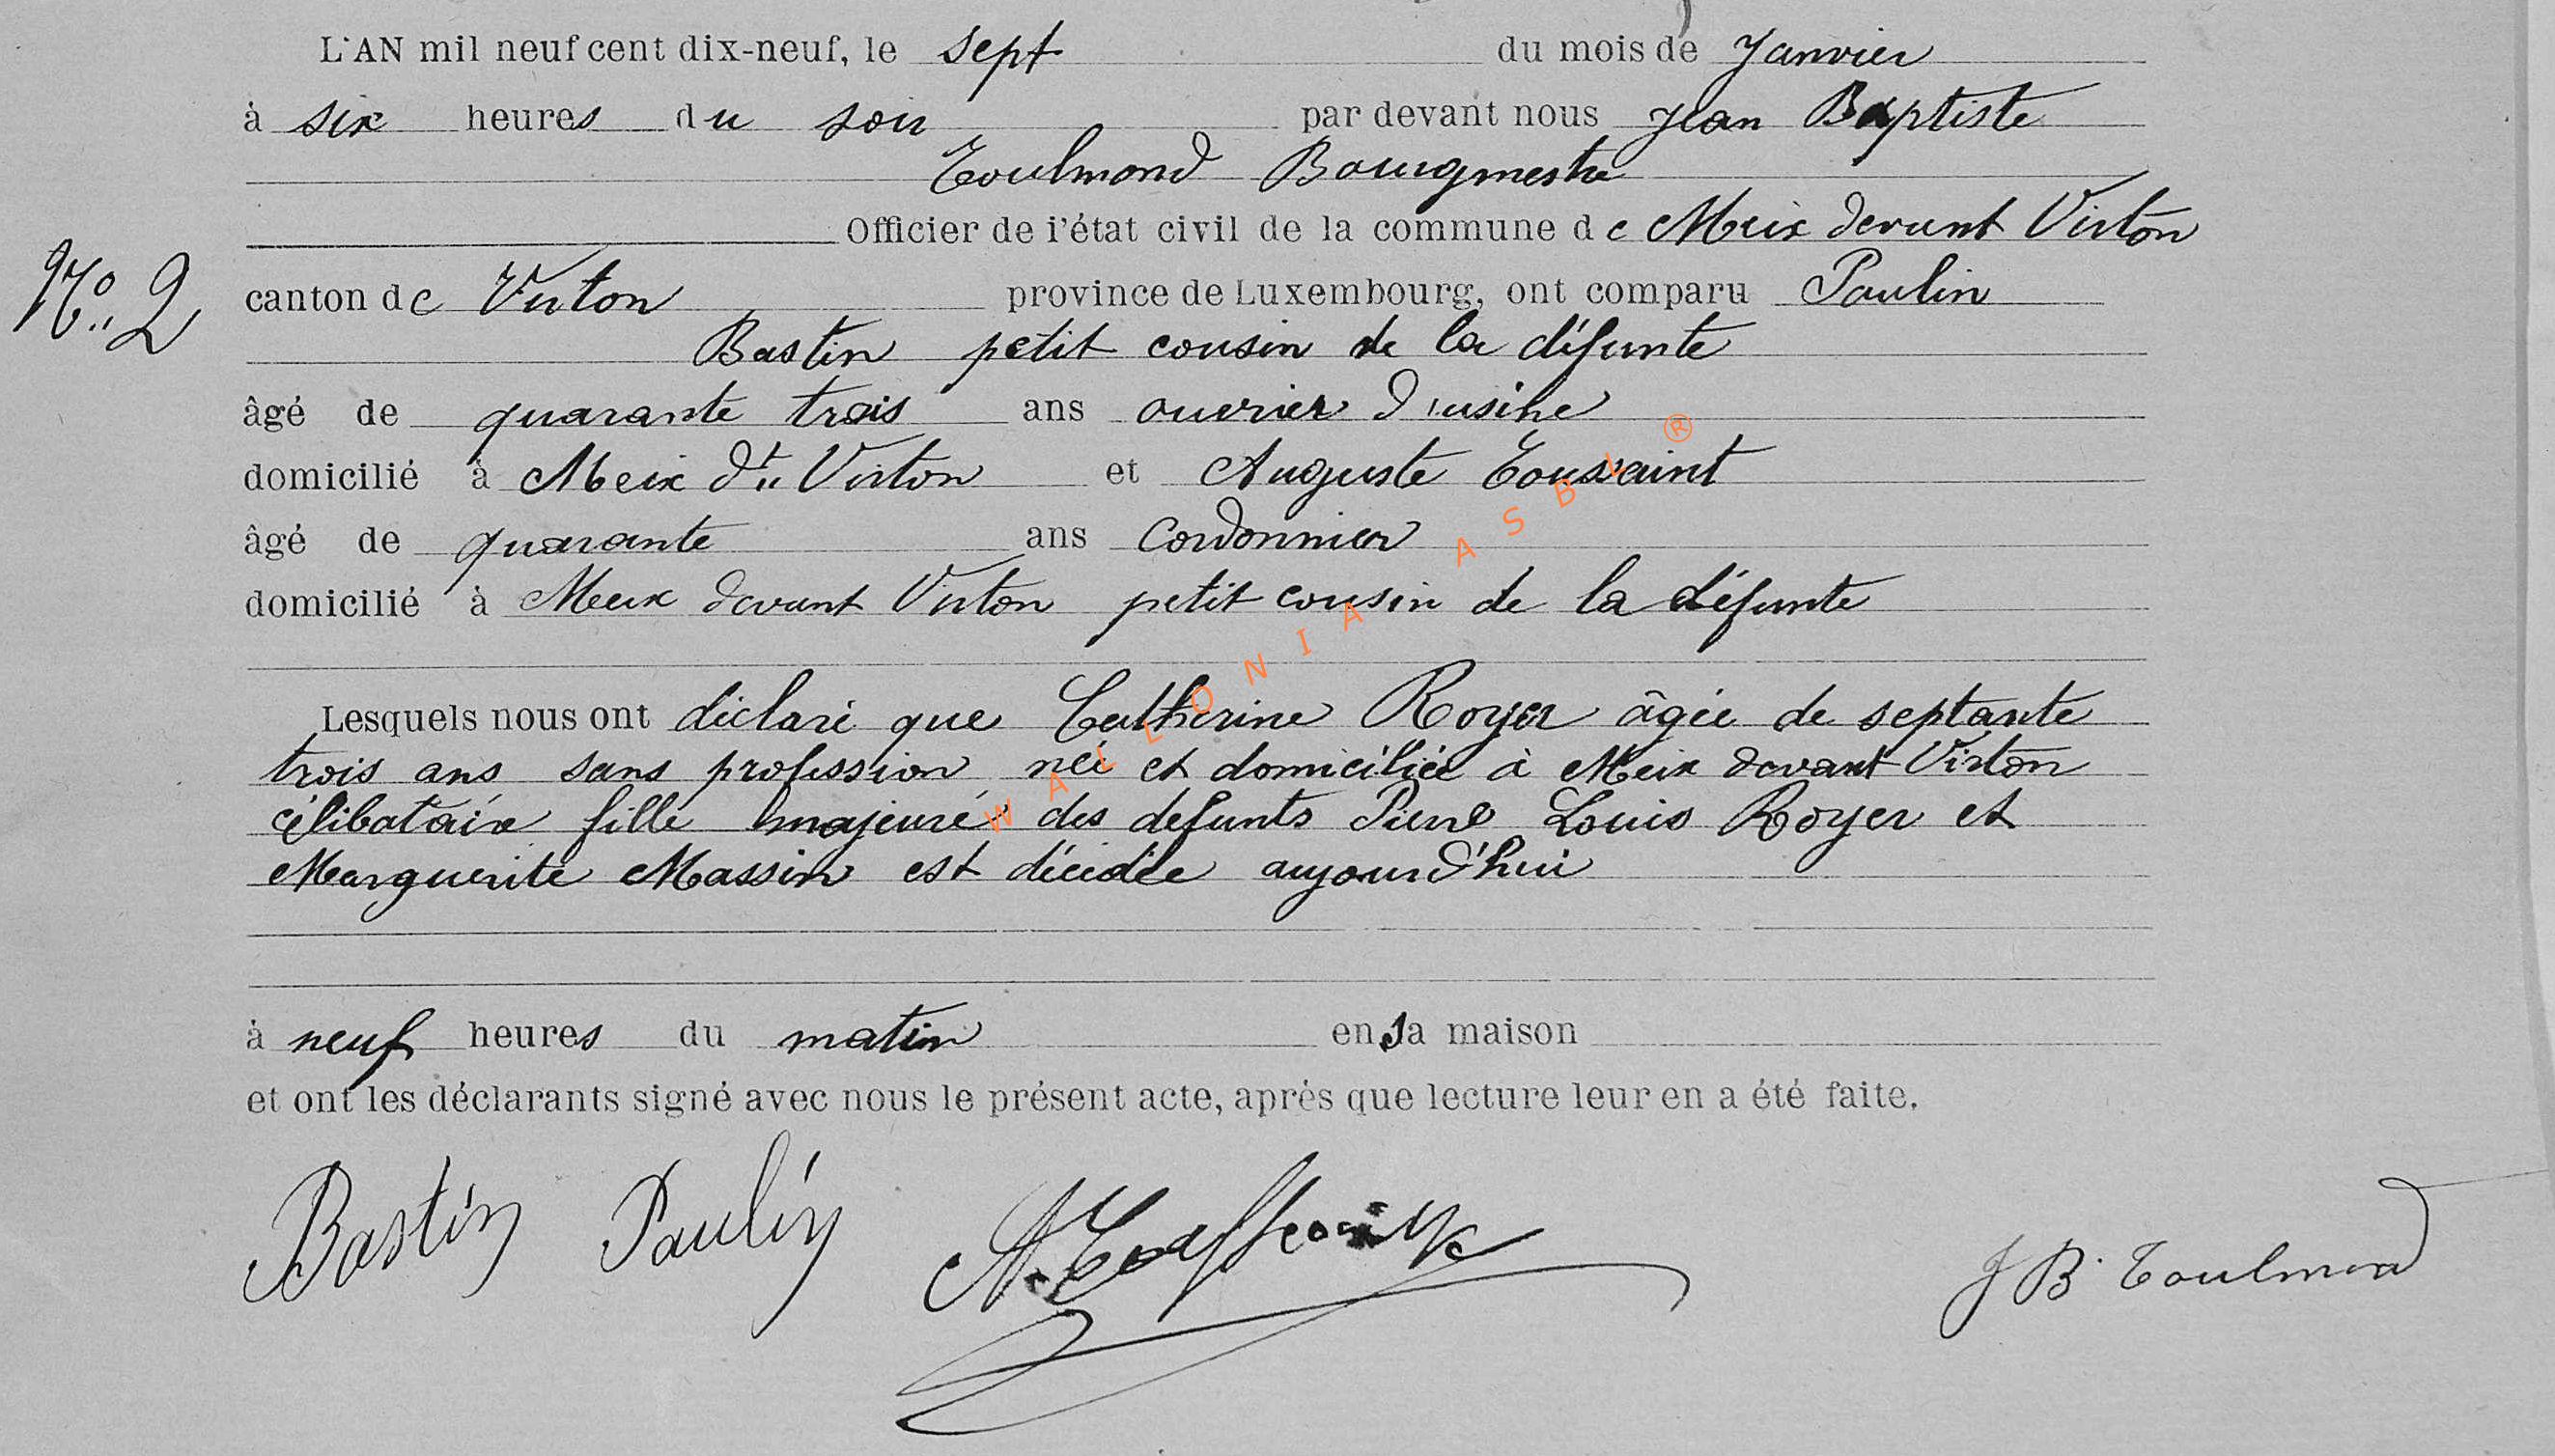 L'AN mil neuf cent dix-neuf, le sept du mois de Janvier
à six heures du soir par devant nous Jean Baptiste
Toulmond Bourgmestre
Officier de l'état civil de la commune de Meix devant Virton
N° 2
canton de Virton province de Luxembourg, ont comparu Paulin
Bastin petit cousin de la défunte
âgé de quarante trois ans ouvrier d'usine
domicilié à Meix dt Virton et Auguste Toussaint
âgé de quarante ans Cordonnier
domicilié à Meix devant Virton petit cousin de la défunte
Lesquels nous ont déclaré que Catherine Royer âgée de septante
trois ans sans profession née et domiciliée à Meix devant Virton
célibataire fille majeure des defunts Pierre Louis Royer et
Marguerite Massin est décédée aujourd'hui
à neuf heures du matin en sa maison
et ont les déclarants signé avec nous le présent acte, après que lecture leur en a été faite.
Bastin Paulin A. Toussaint J B. Toulmond
WALLONIA ASBL ®